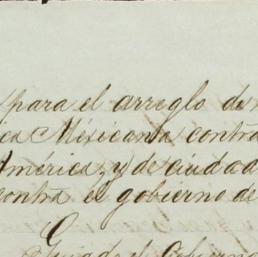 para el arreglo de
ca Mexicana contra
America, y de ciudad
contra el gobierno de